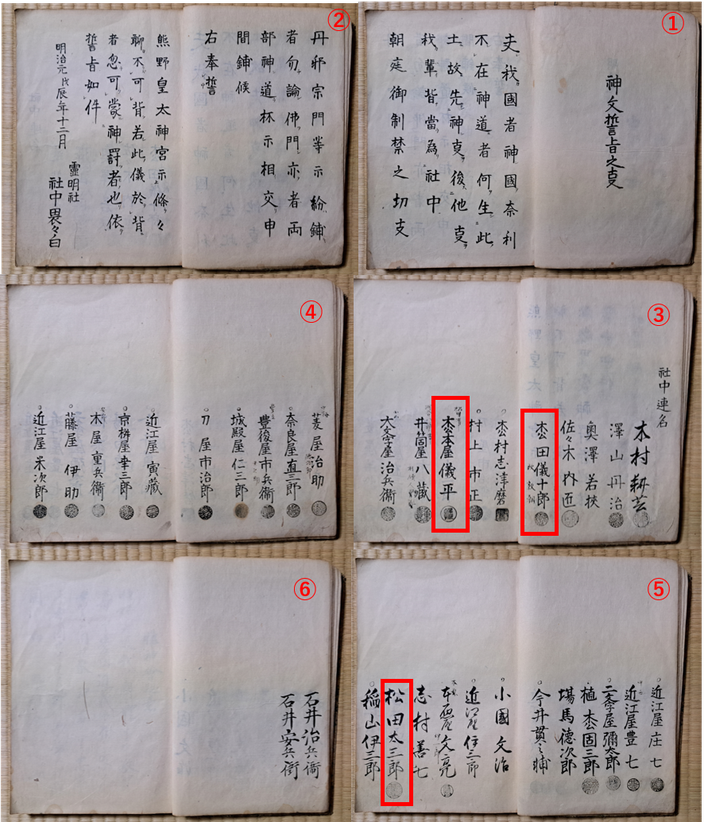 ①
神文誓旨之叓
夫我國者神國奈利
不在神道者何生此
土故先神叓後他叓
我輩皆當為社中
朝庭御制禁之切支
②
丹邪宗門等示紛鋪
者勿論佛門亦者両
部神道杯示相交申
間鋪候
右奉誓
熊野皇太神宮示條々
聊不可背若此儀於背
者忽可蒙神罸者也依
誓旨如件
明治元戊辰年十二月
霊明社
社中畏々白
③
社中連名
木村耕芸
澤山丹治
奥澤若狭
佐々木内匠
枩田儀十郎
枩村志津磨
村上市正
枩本屋儀平
井筒屋八藏
大文字屋治兵衞
④
菱屋治助
奈良屋直三郎
豊後屋市兵衞
城殿屋仁三郎
刀屋市治郎
近江屋寅藏
京桝屋幸三郎
木屋重兵衞
藤屋伊助
近江屋米次郎
⑤
近江屋庄七
近江屋豊七
二条屋彌太郎
植枩固三郎
場馬德次郎
今井貫之輔
小國文治
近江屋伊三郎
志村善七
松田太三郎
稲山伊三郎
⑥
石井治兵衞
石井安兵衞